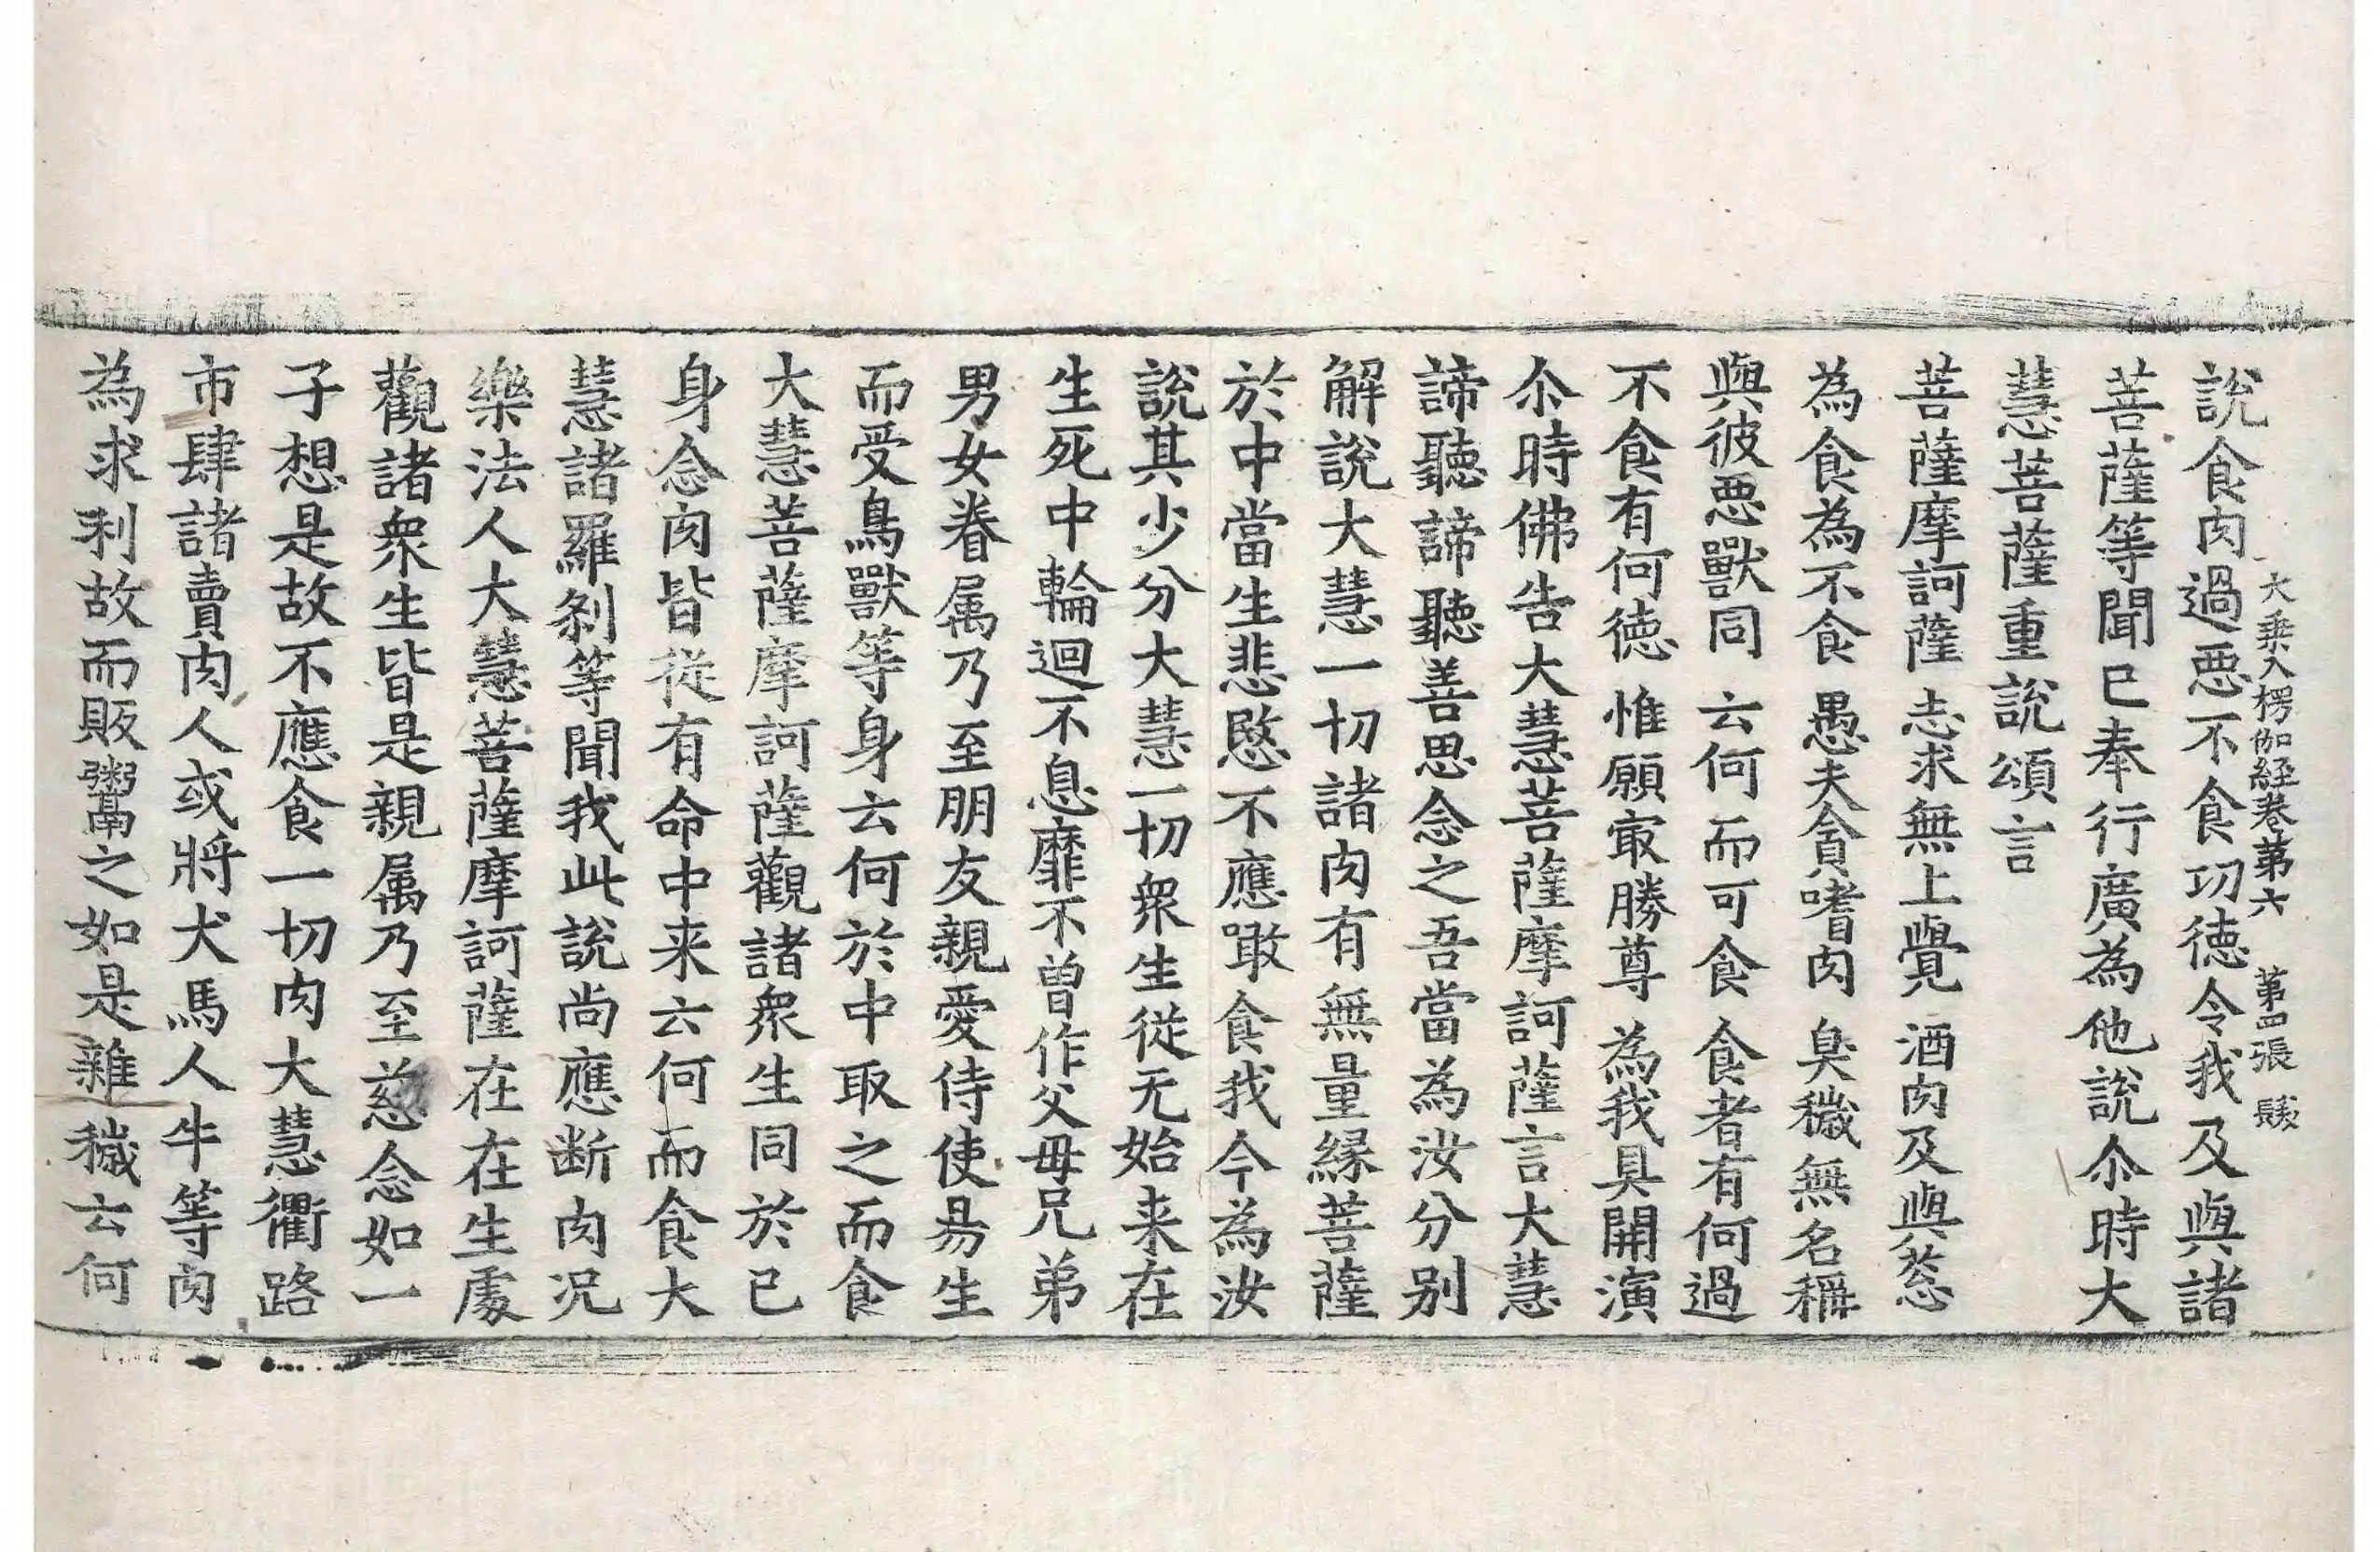 大乗入楞伽経巻第六 第四張 髮
說食肉過惡不食功徳令我及與諸
菩薩等聞已奉行廣為他說尒時大
慧菩薩重說頌言
菩薩摩訶薩 志求無上覺 酒肉及與葱
為食為不食 愚夫貪嗜肉 臭穢無名稱
與彼惡獸同 云何而可食 食者有何過
不食有何徳 惟願㝡勝尊 為我具開演
尒時佛告大慧菩薩摩訶薩言大慧
諦聽諦聽善思念之吾當為汝分別
解說大慧一切諸肉有無量緣菩薩
於中當生悲愍不應噉食我今為汝
說其少分大慧一切衆生從无始来在
生死中輪迴不息靡不曾作父母兄弟
男女眷属乃至朋友親愛侍使易生
而受鳥獸等身云何於中取之而食
大慧菩薩摩訶薩觀諸衆生同於己
身念肉皆從有命中来云何而食大
慧諸羅剎等聞我此說尚應断肉況
樂法人大慧菩薩摩訶薩在在生處
觀諸衆生皆是親属乃至慈念如一
子想是故不應食一切肉大慧衢路
市肆諸賣肉人或將犬馬人牛等肉
為求利故而販鬻之如是雜穢云何